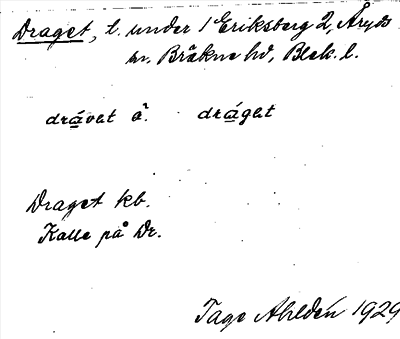 Draget, t. under 1 Eriksberg 2, Åryds
sn. Bräkne hd, Blek. l.
drávet ä̀. dráget
Draget kb.
Kalle på Dr.
Tage Ahldén 1929